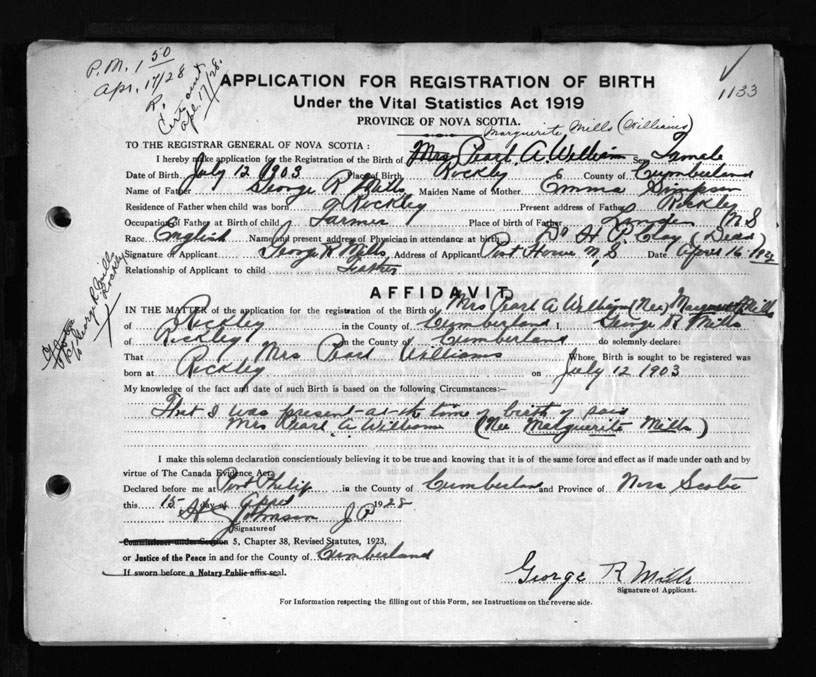 P.M. 1 50
Apr. 17/28
1133
APPLICATION FOR REGISTRATION OF BIRTH
Under the Vital Statistics Act 1919
PROVINCE OF NOVA SCOTIA.
Marguerite Mills (Williams)
TO THE REGISTRAR GENERAL OF NOVA SCOTIA:
I hereby make application for the Registration of the Birth of Mrs Pearl A William Sex Female
Date of Birth July 12 1903 Place of Birth Rockley County of Cumberland
Name of Father George R Mills Maiden Name of Mother Emma Simpson
Residence of Father when child was born Rockley Present address of Father Rockley
Occupation of Father at Birth of child Farmer Place of birth of Father N S
Race English Name and present address of Physician in attendance at birth Dr H P Clay (Dead)
Signature of Applicant George R Mills Address of Applicant Port Howe N.S Date April 16 192
Relationship of Applicant to child Father
c/o George R Mills
Rockley
AFFIDAVIT
IN THE MATTER of the application for the registration of the Birth of Mrs Pearl A William (Nee) Marguerite Mills
of Rockley in the County of Cumberland I, George R Mills
of Rockley in the County of Cumberland do solemnly declare:
That Mrs Pearl Williams Whose Birth is sought to be registered was
born at Rockley on July 12 1903
My knowledge of the fact and date of such Birth is based on the following Circumstances:—
That I was present at the time of birth of said
Mrs Pearl A William (Nee Marguerite Mills)
I make this solemn declaration conscientiously believing it to be true and knowing that it is of the same force and effect as if made under oath and by
virtue of The Canada Evidence Act.
Declared before me at Port Philip in the County of Cumberland and Province of Nova Scotia
this 15 day of April 1928
Johnson J P
Signature of
Commissioner under Section 5, Chapter 38, Revised Statutes, 1923,
or Justice of the Peace in and for the County of Cumberland
If sworn before a Notary Public affix seal.
George R Mills
Signature of Applicant.
For Information respecting the filling out of this Form, see Instructions on the reverse side.